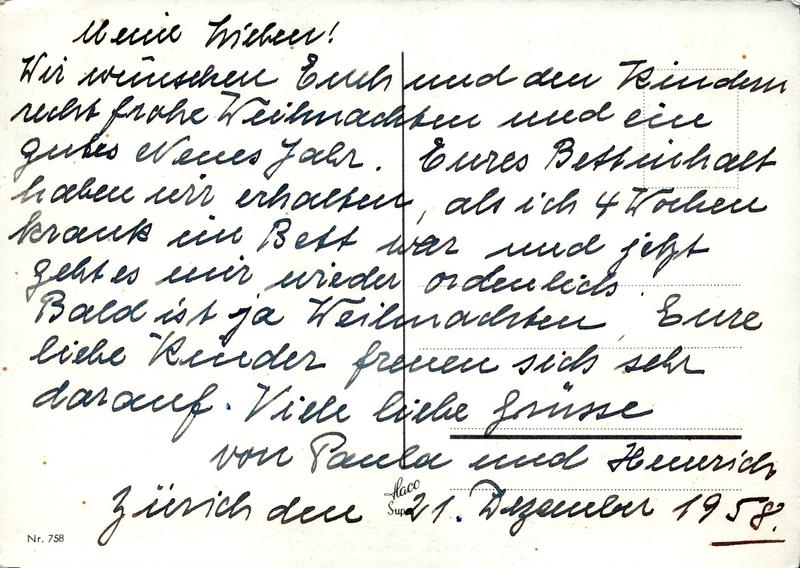 Meine Lieben!
Wir wünschen Euch und den Kindern
recht frohe Weihnachten und ein
gutes Neues Jahr. Eures Bettinhalt
haben wir erhalten, als ich 4 Wochen
krank im Bett war und jetzt
geht es mir wieder ordenlich.
Bald ist ja Weihnachten, Eure
liebe Kinder freuen sich sehr
darauf. Viele liebe Grüsse
von Paula und Heinrich
Zürich den 21. Dezember 1958.
Haco
Super
Nr. 758